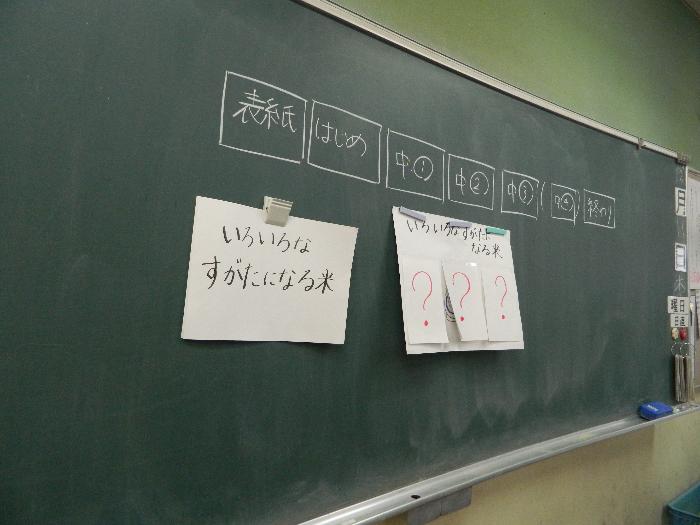 表紙
はじめ
中①
中②
中③
(中④)
終わり
いろいろな
すがたになる米
いろいろなすがたに
なる米
?
?
?
月
日
木
曜日
日直